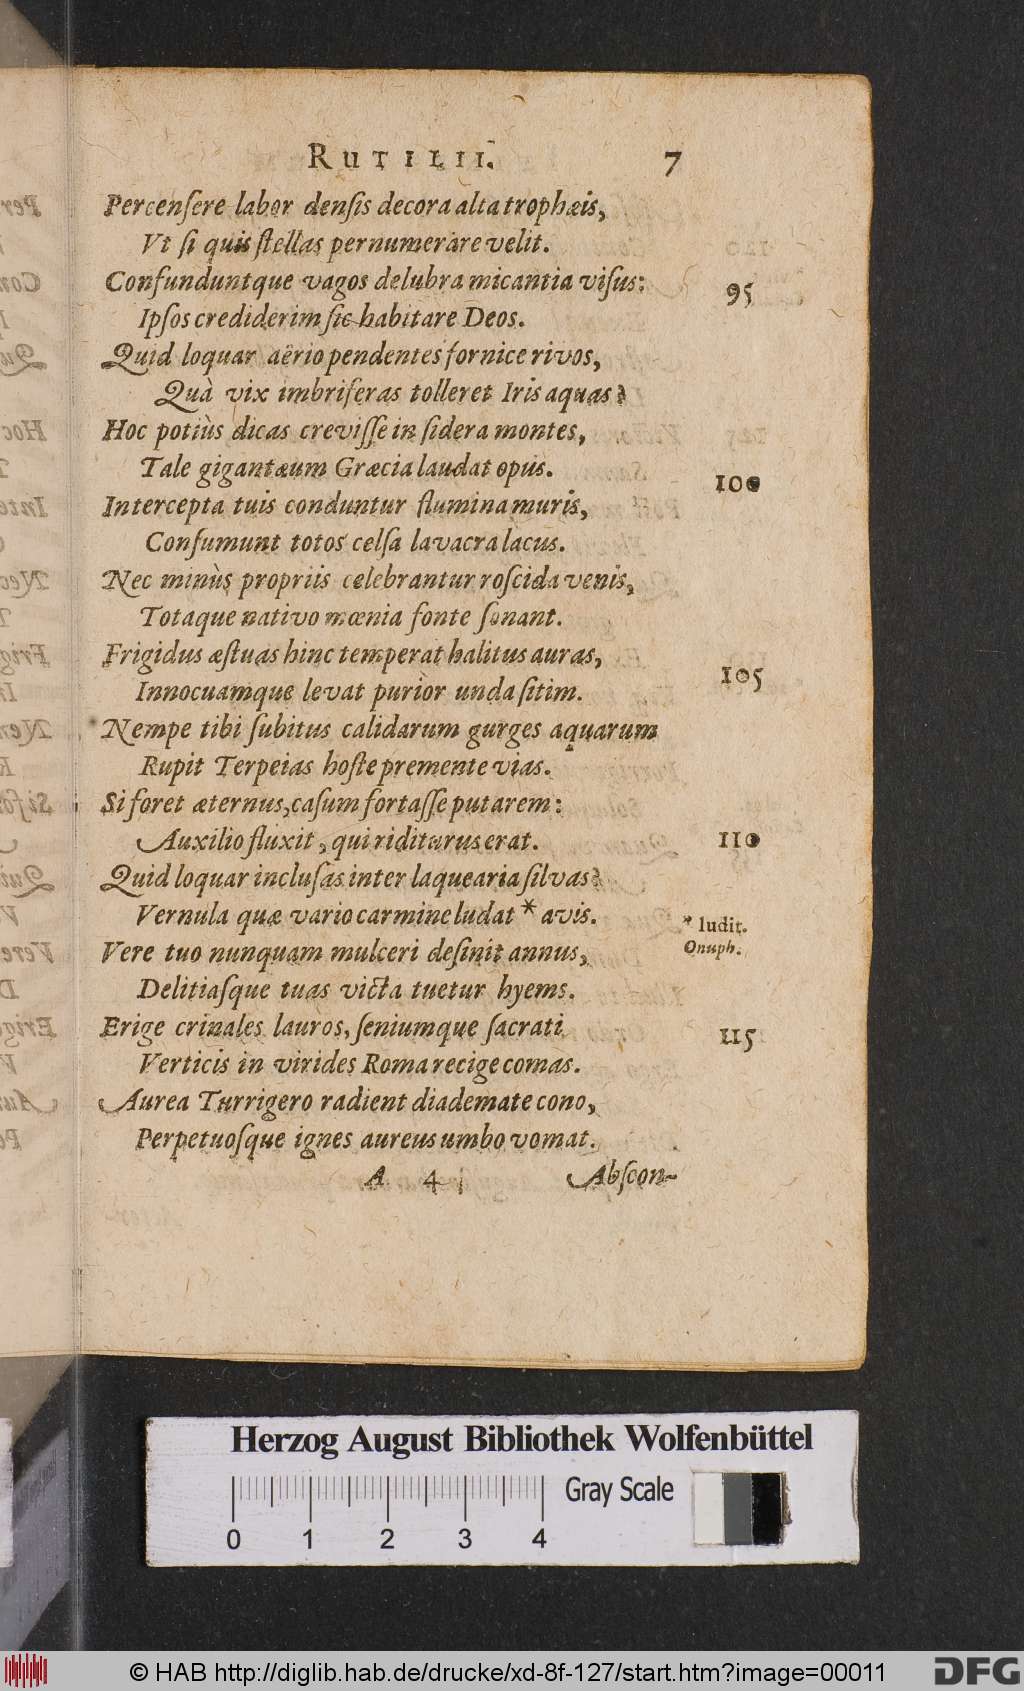 RUTILII. 7
Percenſere labor denſis decora alta trophæis,
Vt ſi quis ſtellas pernumerare velit.
Confunduntque vagos delubra micantia viſus: 95
Ipſos crediderim ſic habitare Deos.
Quid loquar aërio pendentes fornice rivos,
Quà vix imbriferas tolleret Iris aquas?
Hoc potiùs dicas creviſſe in ſidera montes,
Tale gigantæum Græcia laudat opus. 100
Intercepta tuis conduntur flumina muris,
Conſumunt totos celſa lavacra lacus.
Nec minùs propriis celebrantur roſcida venis,
Totaque nativo mœnia fonte ſonant.
Frigidus æſtuas hinc temperat halitus auras, 105
Innocuamque levat purior unda ſitim.
Nempe tibi ſubitus calidarum gurges aquarum
Rupit Terpeias hoſte premente vias.
Si foret æternus, caſum fortaſſe putarem:
Auxilio fluxit, qui riditurus erat. 110
Quid loquar incluſas inter laquearia ſilvas?
Vernula quæ vario carmine ludat * avis. * ludit.
Onuph.
Vere tuo nunquam mulceri deſinit annus,
Delitiaſque tuas victa tuetur hyems.
Erige crinales lauros, ſeniumque ſacrati 115
Verticis in virides Roma recige comas.
Aurea Turrigero radient diademate cono,
Perpetuoſque ignes aureus umbo vomat.
A 4 Abſcon-
Herzog August Bibliothek Wolfenbüttel
Gray Scale
0 1 2 3 4
© HAB http://diglib.hab.de/drucke/xd-8f-127/start.htm?image=00011
DFG